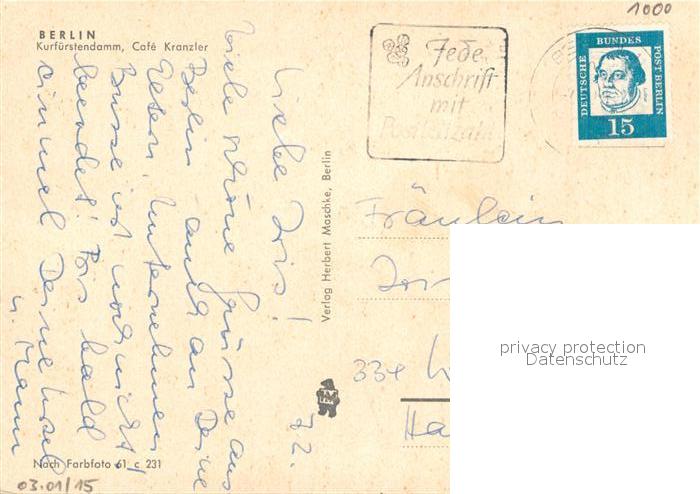 1000
BERLIN
Kurfürstendamm, Café Kranzler
Jede
Anschrift
mit
Postleitzahl
DEUTSCHE BUNDES POST BERLIN
15
72.
Liebe Iris!
Viele schöne Grüsse aus
Berlin auch an Deine
Eltern. Unternehmen
Busse ist noch nicht
beendet! Bis bald
einmal Deine Ursel
u. Mann
Verlag Herbert Maschke, Berlin
Fräulein
334
Ha
privacy protection
Datenschutz
Nach Farbfoto 61 c 231
03.01/15